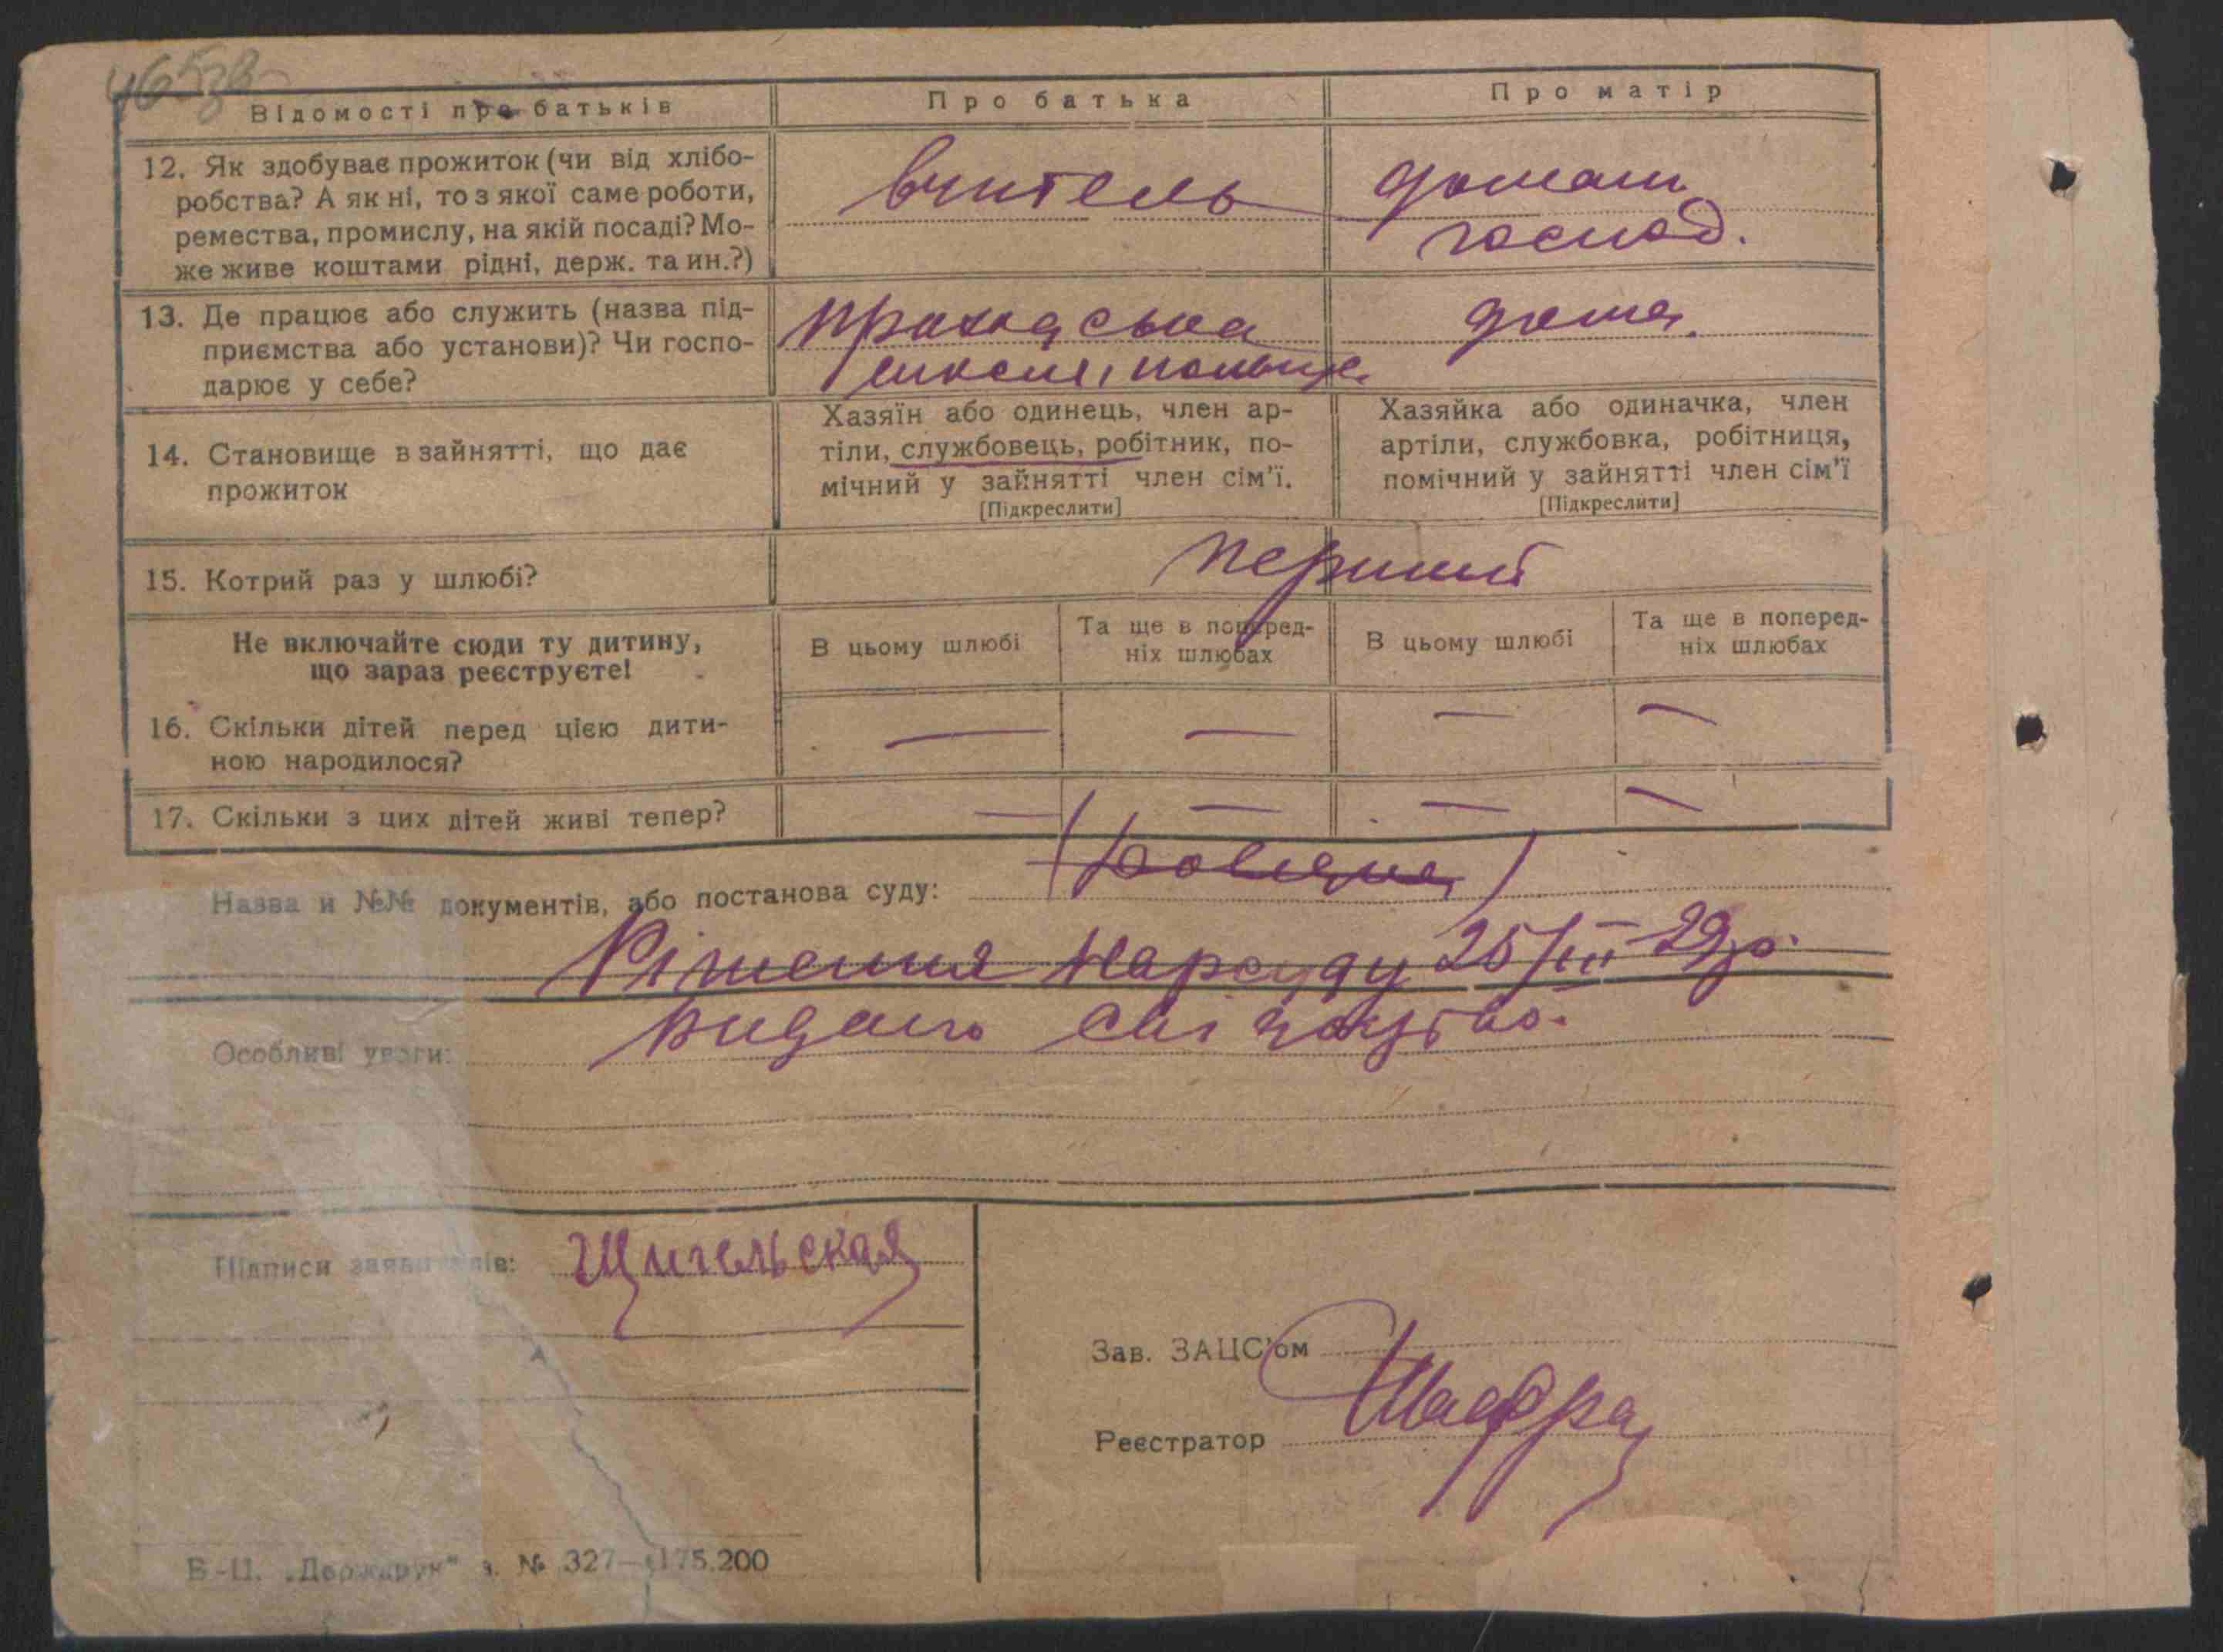 465зв
Відомості про батьків
Про батька
Про матір
12. Як здобуває прожиток (чи від хлібо-
робства? А як ні, то з якої саме роботи,
ремества, промислу, на якій посаді? Мо-
же живе коштами рідні, держ. та ин.?)
вчитель
домаш
господ.
13. Де працює або служить (назва під-
приємства або установи)? Чи госпо-
дарює у себе?
школа, польща
дома.
14. Становище в зайнятті, що дає
прожиток
Хазяїн або одинець, член ар-
тіли, службовець, робітник, по-
мічний у зайнятті член сім'ї.
[Підкреслити]
Хазяйка або одиначка, член
артіли, службовка, робітниця,
помічний у зайнятті член сім'ї
[Підкреслити]
15. Котрий раз у шлюбі?
перший
Не включайте сюди ту дитину,
що зараз реєструєте!
В цьому шлюбі
Та ще в поперед-
ніх шлюбах
В цьому шлюбі
Та ще в поперед-
ніх шлюбах
16. Скільки дітей перед цією дити-
ною народилося?
— — — —
17. Скільки з цих дітей живі тепер?
— — — —
Назва и №№ документів, або постанова суду:
Рішення Нарсуду 25/III-29 р.
Особливі уваги:
видано свідоцтво.
Підписи заявителів: Щигельская
Зав. ЗАЦС'ом
Реєстратор
Б-Ц. „Держдрук" з. № 327—175.200